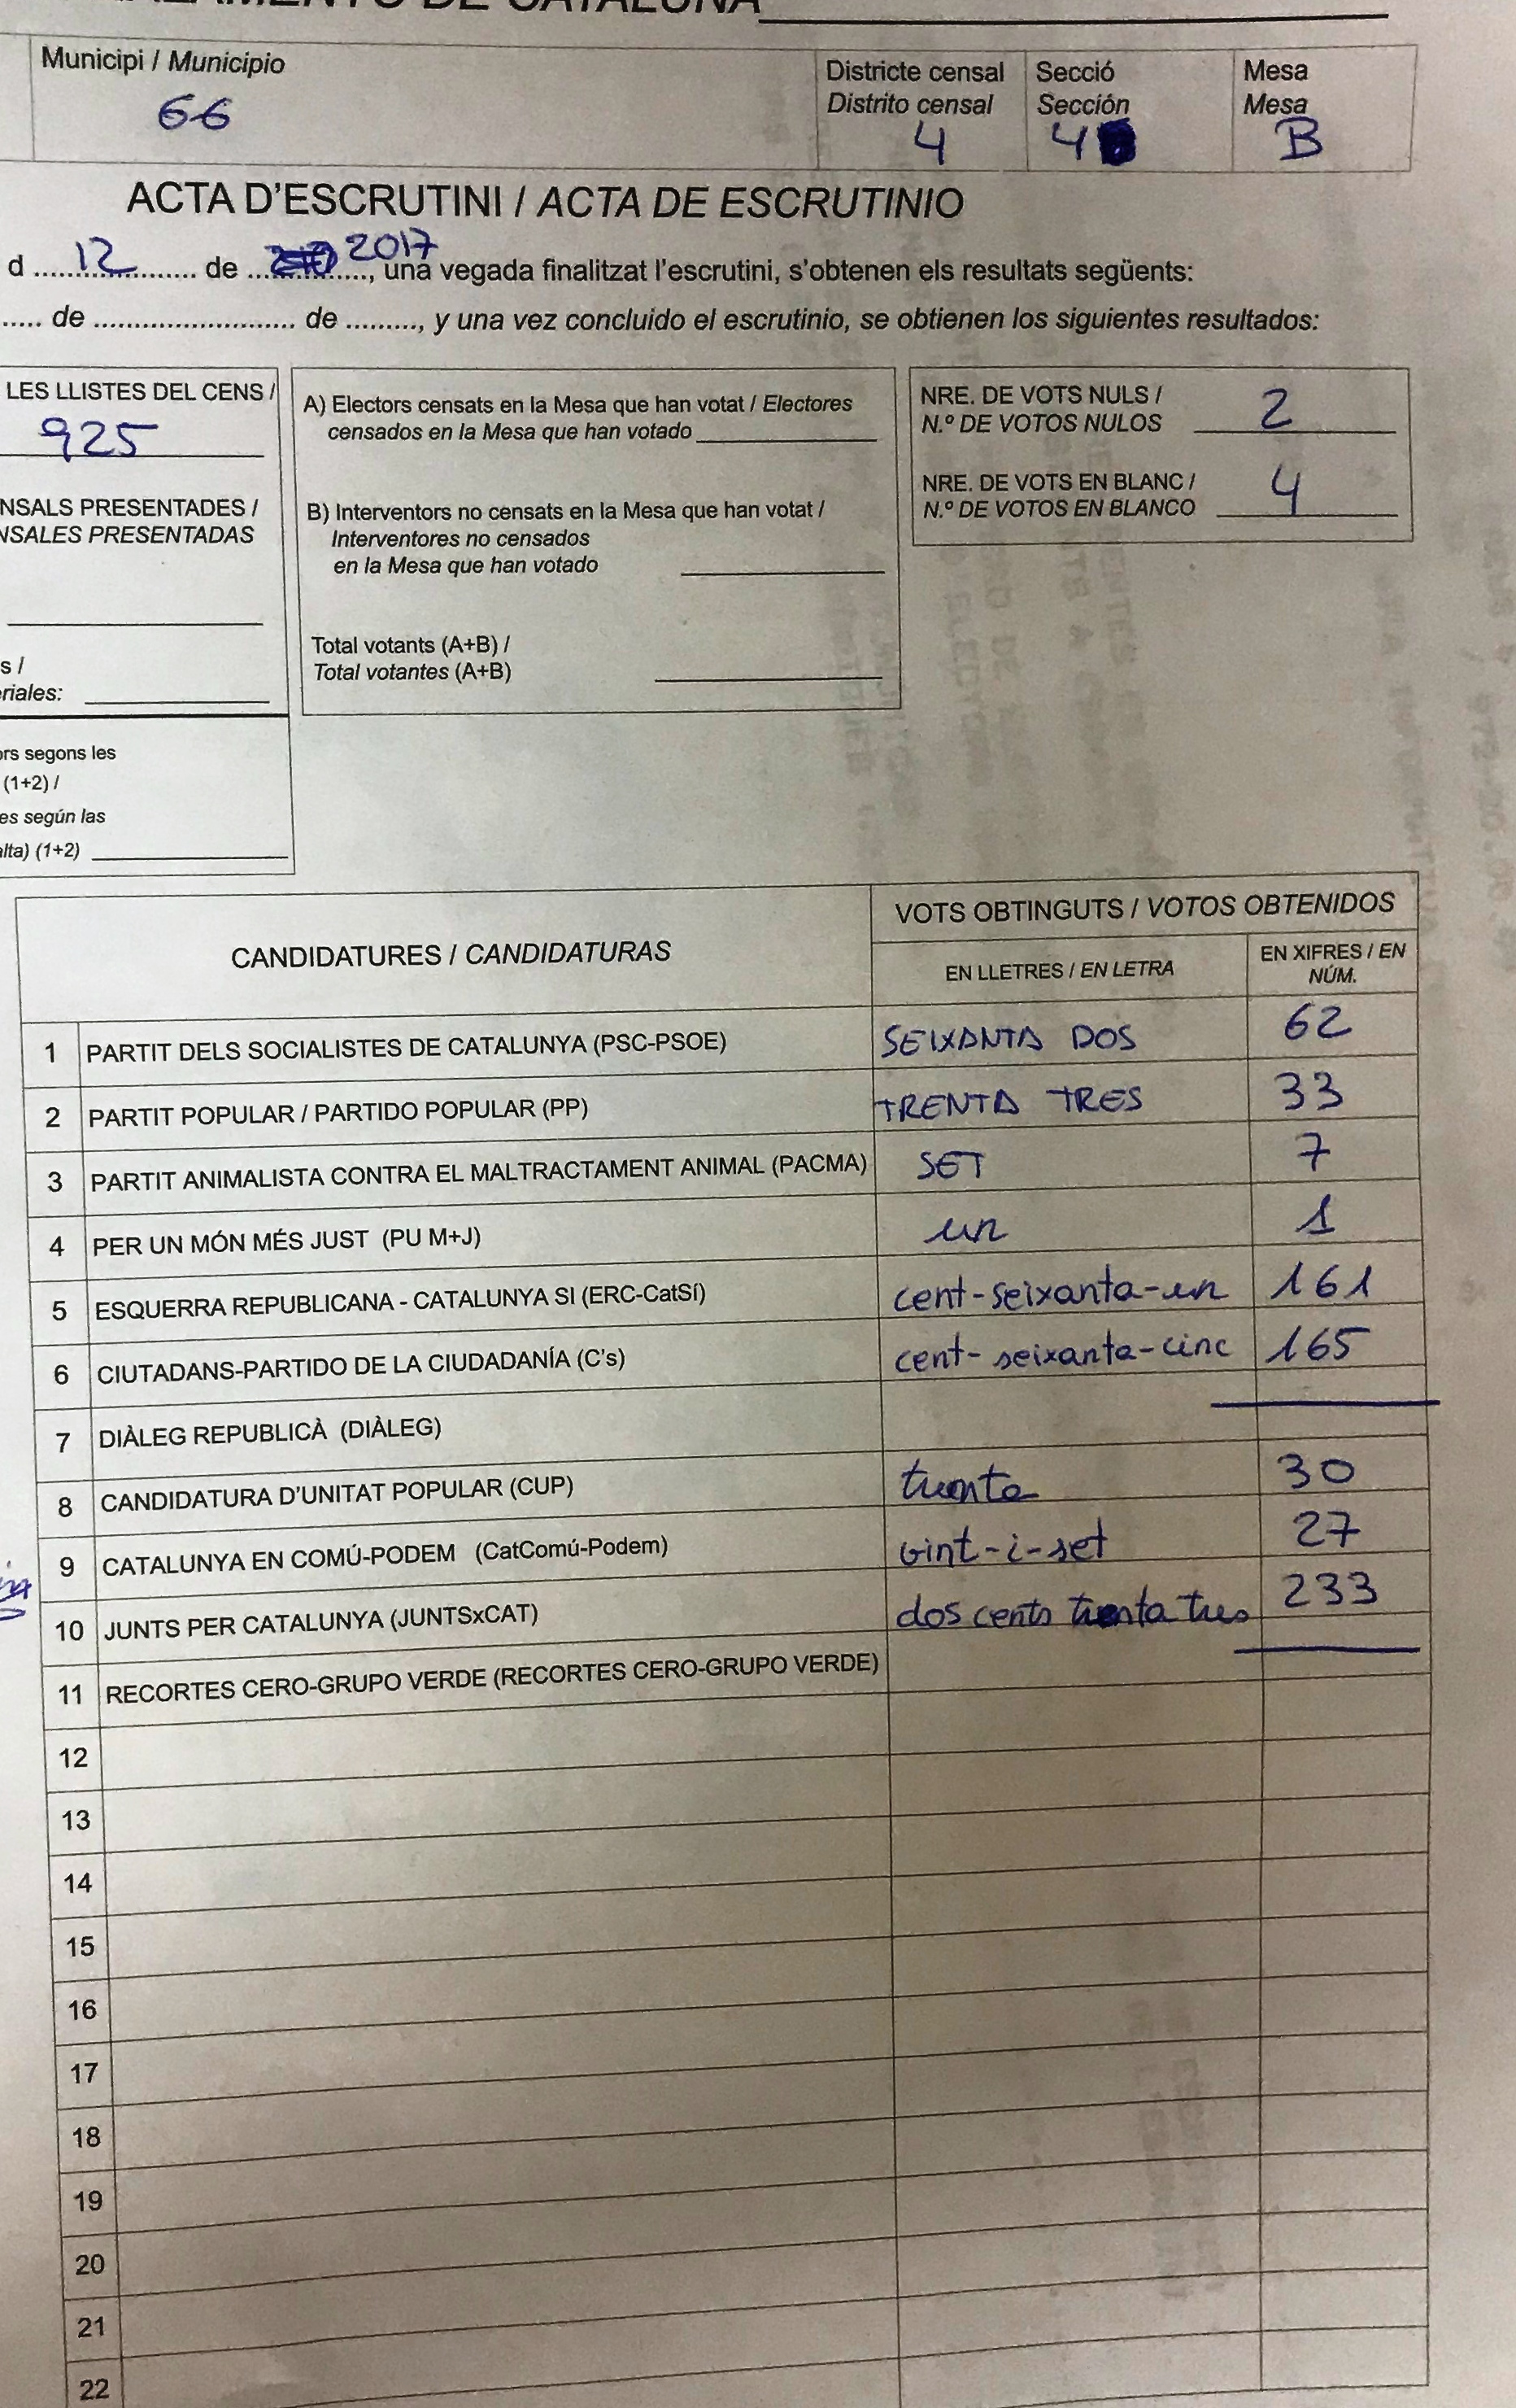 DE CATALUÑA
Municipi / Municipio
66
Districte censal
Distrito censal
4
Secció
Sección
4
Mesa
Mesa
B
ACTA D'ESCRUTINI / ACTA DE ESCRUTINIO
d 12 de 2017, una vegada finalitzat l'escrutini, s'obtenen els resultats següents:
..... de ........................ de ........., y una vez concluido el escrutinio, se obtienen los siguientes resultados:
LES LLISTES DEL CENS /
925
NSALS PRESENTADES /
NSALES PRESENTADAS
s /
riales:
ors segons les
(1+2) /
es según las
alta) (1+2)
A) Electors censats en la Mesa que han votat / Electores
censados en la Mesa que han votado
B) Interventors no censats en la Mesa que han votat /
Interventores no censados
en la Mesa que han votado
Total votants (A+B) /
Total votantes (A+B)
NRE. DE VOTS NULS /
N.º DE VOTOS NULOS 2
NRE. DE VOTS EN BLANC /
N.º DE VOTOS EN BLANCO 4
CANDIDATURES / CANDIDATURAS
VOTS OBTINGUTS / VOTOS OBTENIDOS
EN LLETRES / EN LETRA
EN XIFRES / EN
NÚM.
1 PARTIT DELS SOCIALISTES DE CATALUNYA (PSC-PSOE) SEIXANTA DOS 62
2 PARTIT POPULAR / PARTIDO POPULAR (PP) TRENTA TRES 33
3 PARTIT ANIMALISTA CONTRA EL MALTRACTAMENT ANIMAL (PACMA) SET 7
4 PER UN MÓN MÉS JUST (PU M+J) un 1
5 ESQUERRA REPUBLICANA - CATALUNYA SI (ERC-CatSí) cent-seixanta-un 161
6 CIUTADANS-PARTIDO DE LA CIUDADANÍA (C's) cent-seixanta-cinc 165
7 DIÀLEG REPUBLICÀ (DIÀLEG)
8 CANDIDATURA D'UNITAT POPULAR (CUP) trenta 30
9 CATALUNYA EN COMÚ-PODEM (CatComú-Podem) vint-i-set 27
10 JUNTS PER CATALUNYA (JUNTSxCAT) dos cents trenta tres 233
11 RECORTES CERO-GRUPO VERDE (RECORTES CERO-GRUPO VERDE)
12
13
14
15
16
17
18
19
20
21
22